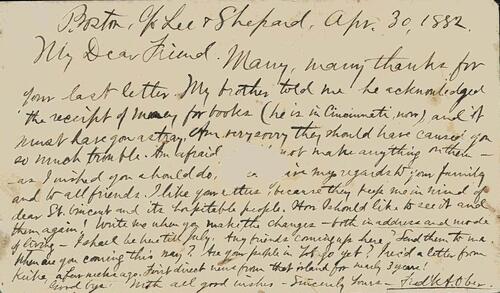 Boston, c/o Lee & Shepard, Apr. 30, 1882.
My Dear Friend. Many, many thanks for
your last letter. My brother told me he acknowledged
the receipt of money for books (he is in Cincinnati, now) and it
must have gone astray. Am very sorry they should have caused you
so much trouble. Am afraid not make anything on them —
as I wished you should do, my regards to your family
and to all friends. I like your letters, because they keep me in mind of
dear St. Vincent and its hospitable people. How I should like to see it and
them again! Write me when you make the changes — both in address and mode
of — I shall be here till July. Any friends coming up here? Send them to me.
When are you coming this way? Are your people in yet? Rec'd a letter from
a few weeks ago. First direct news from that island for nearly 3 years!
Good bye! With all good wishes — Sincerely Yours — Fred k A. Ober.